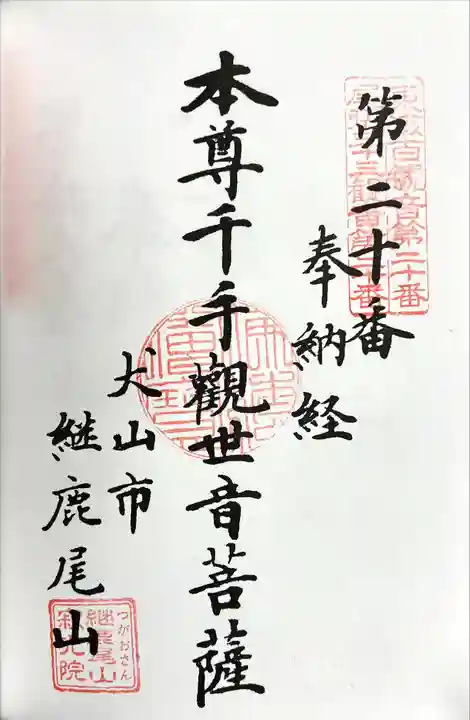 第二十番
奉納経
本尊千手觀世音菩薩
犬山市
継鹿尾山
百観音第二十番
つがおさん
継鹿尾山
寂光院